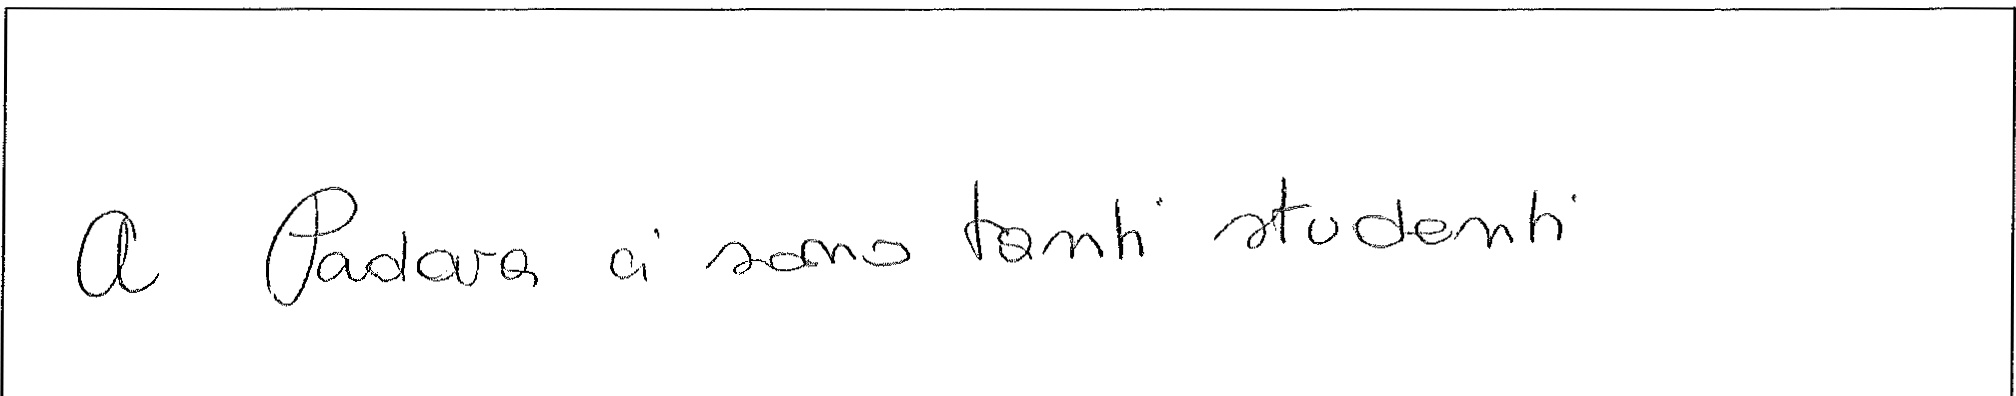 A Padova ci sono tanti studenti